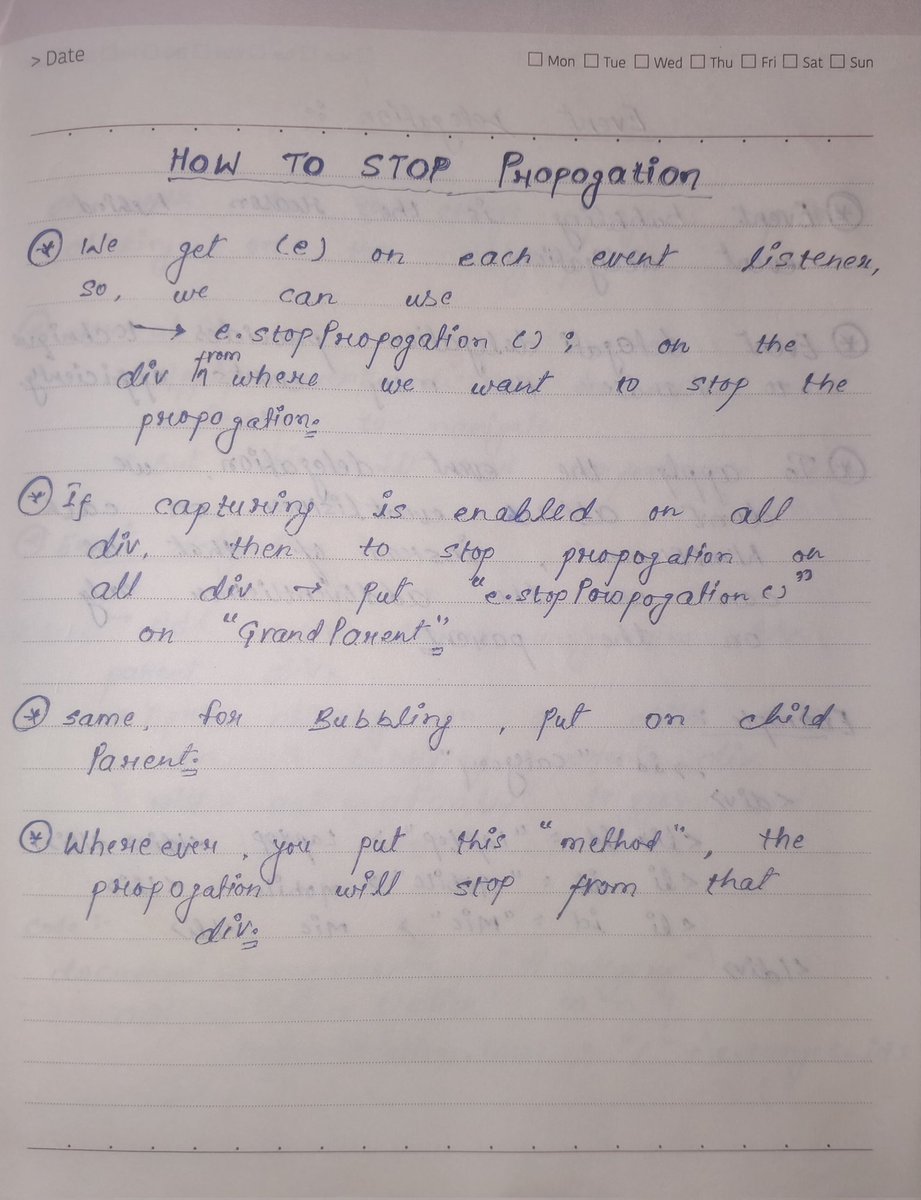 > Date
Mon Tue Wed Thu Fri Sat Sun
HOW TO STOP Propogation
We get (e) on each event listener,
so, we can use
→ e.stopPropogation() ; on the
div from where we want to stop the
propogation.
If capturing is enabled on all
div, then to stop propogation on
all div → put "e.stopPropogation()"
on "GrandParent".
same, for Bubbling, put on child
Parent.
Whereever, you put this "method", the
propogation will stop from that
div.